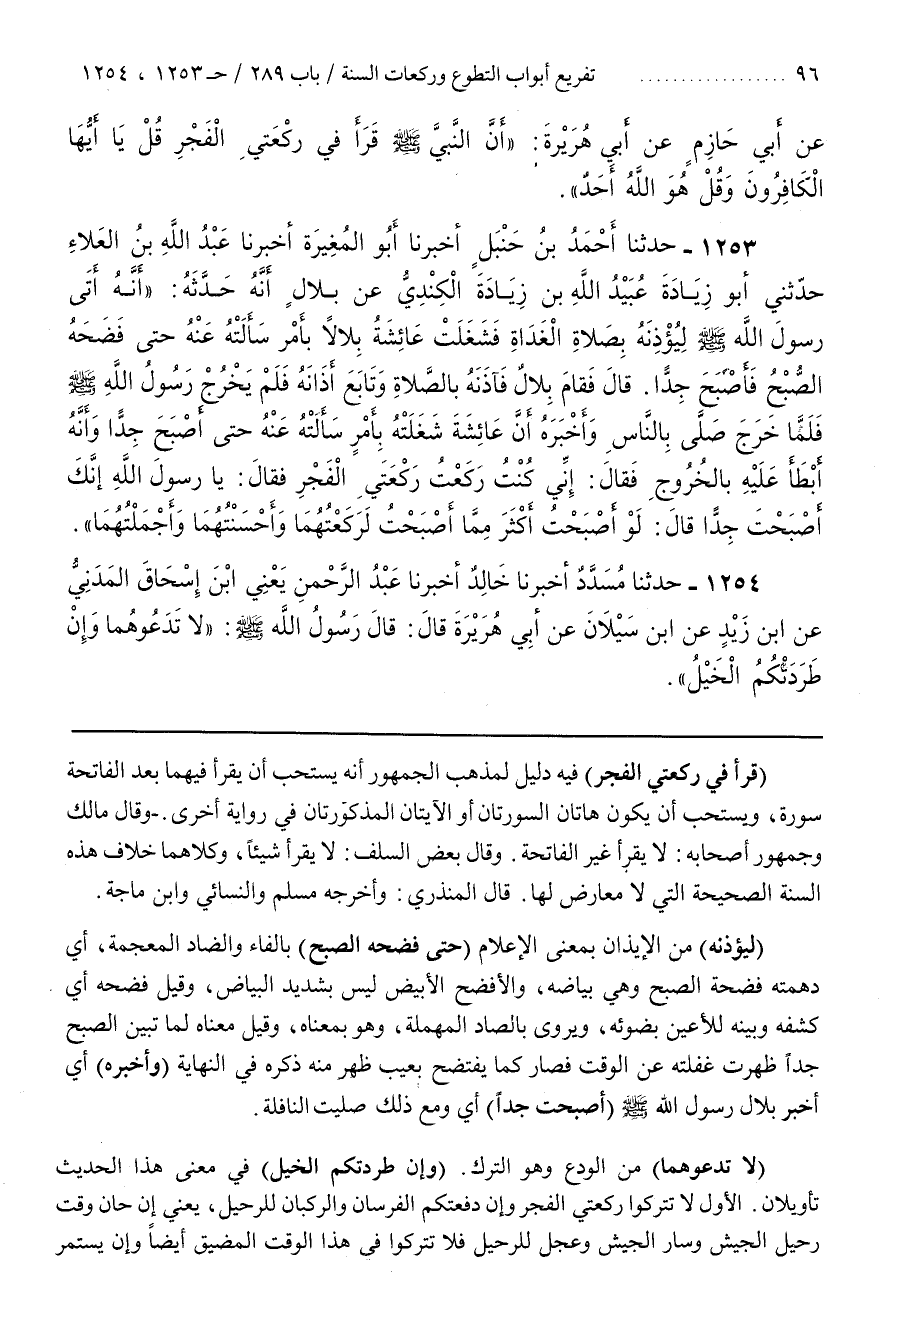 ٩٦ .................. تفريع أبواب التطوع وركعات السنة / باب ٢٨٩ / حـ ١٢٥٣ ، ١٢٥٤
عن أَبي حَازِمٍ عن أَبي هُرَيْرَةَ: «أَنَّ النَّبيَّ ﷺ قَرَأَ في ركْعَتي الْفَجْرِ قُلْ يَا أَيُّهَا
الْكَافِرُونَ وَقُلْ هُوَ اللَّهُ أَحَدٌ».
١٢٥٣ ـ حدثنا أَحْمَدُ بنُ حَنْبَلٍ أخبرنا أَبُو المُغِيَرَة أخبرنا عَبْدُ اللَّهِ بنُ العَلاءِ
حدّثني أبو زِيَادَةَ عُبَيْدُ اللَّهِ بن زِيَادَةَ الْكِنْدِيُّ عن بـلالٍ أَنَّهُ حَـدَّثَهُ: «أَنَّـهُ أَتَى
رسولَ اللَّه ﷺ لِيُؤْذِنَهُ بِصَلاةِ الْغَدَاةِ فَشَغَلَتْ عَائِشَةُ بِلالاً بأَمْرٍ سَأَلَتْهُ عَنْهُ حتى فَضَحَهُ
الصُّبْحُ فَأَصْبَحَ جِدًّا. قالَ فَقامَ بِلالٌ فَآذَنَهُ بالصَّلاةِ وَتَابَعَ أَذَانَهُ فَلَمْ يَخْرُجْ رَسُولُ اللَّهِ ﷺ
فَلَمَّا خَرَجَ صَلَّى بِالنَّاسِ وَأَخْبَرَهُ أَنَّ عَائِشَةَ شَغَلَتْهُ بِأَمْرٍ سَأَلَتْهُ عَنْهُ حتى أَصْبَحَ جِدًّا وَأَنَّهُ
أَبْطَأَ عَلَيْهِ بالخُرُوجِ فَقالَ: إِنِّي كُنْتُ رَكَعْتُ رَكْعَتَي الْفَجْرِ فقالَ: يا رسولَ اللَّهِ إِنَّكَ
أَصْبَحْتَ جِدًّا قالَ: لَوْ أَصْبَحْتُ أَكْثَرَ مِمَّا أَصْبَحْتُ لَرَكَعْتُهُمَا وَأَحْسَنْتُهُمَا وَأَجْمَلْتُهُمَا».
١٢٥٤ ـ حدثنا مُسَدَّدٌ أخبرنا خَالِدٌ أخبرنا عَبْدُ الرَّحْمنِ يَعْنِي ابْنَ إِسْحَاقَ المَدَنِيُّ
عن ابن زَيْدٍ عن ابن سَيْلَانَ عن أَبي هُرَيْرَةَ قالَ: قالَ رَسُولُ اللَّه ﷺ: «لا تَدَعُوهُما وَإِنْ
طَرَدَتْكُمُ الْخَيْلُ».
(قرأ في ركعتي الفجر) فيه دليل لمذهب الجمهور أنه يستحب أن يقرأ فيهما بعد الفاتحة
سورة، ويستحب أن يكون هاتان السورتان أو الآيتان المذكورتان في رواية أخرى. وقال مالك
وجمهور أصحابه: لا يقرأ غير الفاتحة. وقال بعض السلف: لا يقرأ شيئاً، وكلاهما خلاف هذه
السنة الصحيحة التي لا معارض لها. قال المنذري: وأخرجه مسلم والنسائي وابن ماجة.
(ليؤذنه) من الإيذان بمعنى الإعلام (حتى فضحه الصبح) بالفاء والضاد المعجمة، أي
دهمته فضحة الصبح وهي بياضه، والأفضح الأبيض ليس بشديد البياض، وقيل فضحه أي
كشفه وبينه للأعين بضوئه، ويروى بالصاد المهملة، وهو بمعناه، وقيل معناه لما تبين الصبح
جداً ظهرت غفلته عن الوقت فصار كما يفتضح بعيب ظهر منه ذكره في النهاية (وأخبره) أي
أخبر بلال رسول الله ﷺ (أصبحت جداً) أي ومع ذلك صليت النافلة.
(لا تدعوهما) من الودع وهو الترك. (وإن طردتكم الخيل) في معنى هذا الحديث
تأويلان. الأول لا تتركوا ركعتي الفجر وإن دفعتكم الفرسان والركبان للرحيل، يعني إن حان وقت
رحيل الجيش وسار الجيش وعجل للرحيل فلا تتركوا في هذا الوقت المضيق أيضاً وإن يستمر